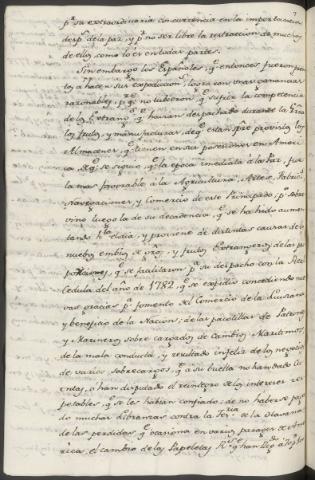 pr. su extraordinaria concurrencia en la importancia
desps. de la paz, y pr. no ser libre la extraccion de muchos
de ellos como lo és en todas partes.
Sin embargo los Españoles, qe. entonces fueron promp
tos à hacer sus expediciones, lograron unas ganancias
razonables, pr. qe. no tubieron qe. sufrir la competencia
de los Extrangs. qe. havian despachado durante la Grra.
los frutos, y manufacturas, de qe. están spre. provistos los
Almacenes, qe. tienen en sus posesiones en Ameri
ca. De qe. se sigue, qe. la epoca inmediata à la Paz, fue
la mas favorable à la Agricultura, Artes, Fabricas
Navegaciones, y Comercio de este Principado, pr. sobre
vino luego la de su decadencia, qe. se ha hido aumen
tando hta. el dia, y proviene de distintas causas: de los
nuebos embios de gros. y frutos Extrangeros, de las ex
pediciones, qe. se facilitaron pr. su despacho con la Rl.
Cedula del año de 1782, qe. se expidio concediendo nue
vas gracias pa. fomento del Comercio de la Luisiana
y beneficio de la Nacion; de las pacotillas de Patrones
y Marineros sobre cargados de Cambios Maritimos;
de la mala conducta, y resultado infeliz de los negocios
de varios sobrecargos, qe. a su buelta no han dado Cu
entas, o han disputado el reintegro de los intereses res
petables, qe. se les habian confiado; de no haberse paga
do muchas libranzas contra la Tesria. de la Havana
de las perdidas qe. ocasiona en varios parages de Amé
rica, el cambio de los Papeletas Rs. qe. han